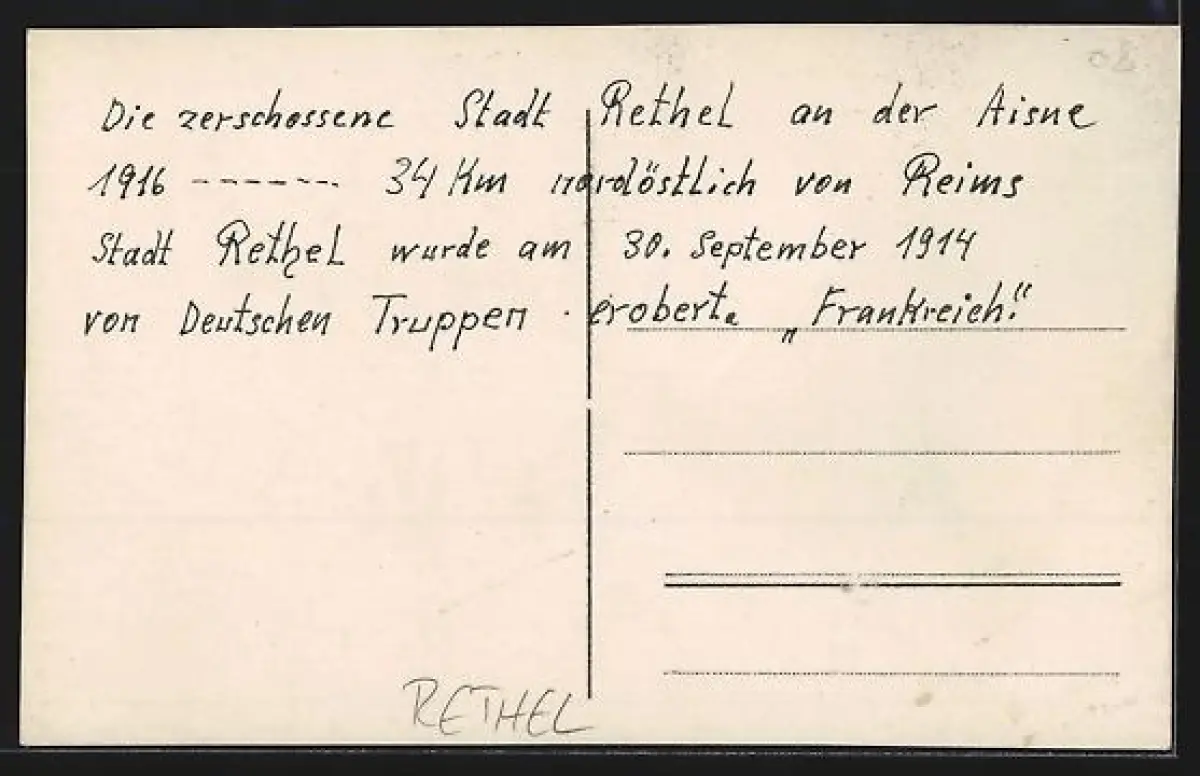 Die zerschossene Stadt Rethel an der Aisne
1916 ------- 34 Km nordöstlich von Reims
Stadt Rethel wurde am 30. September 1914
von Deutschen Truppen erobert. „Frankreich!“
RETHEL